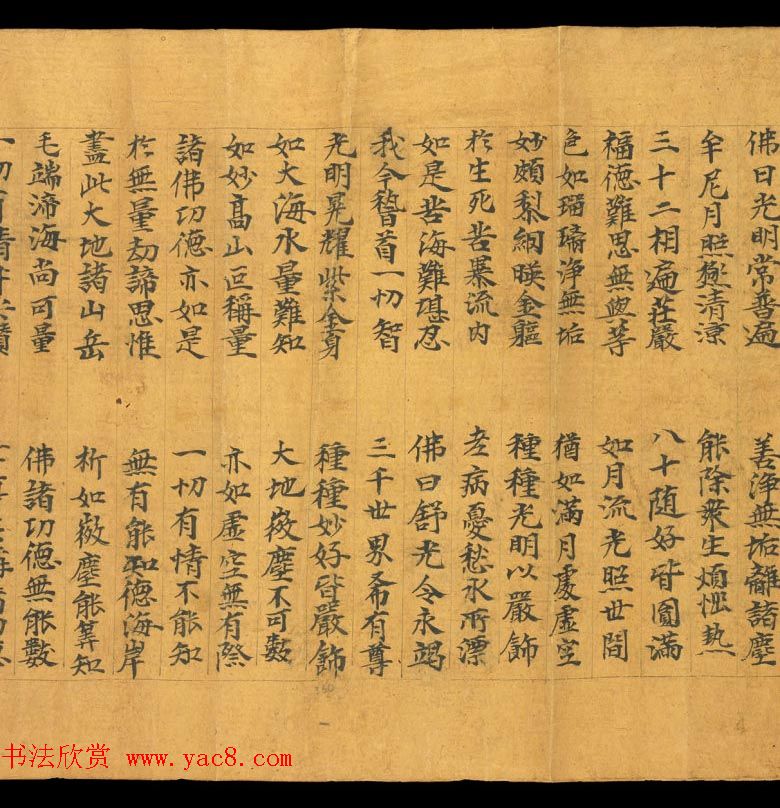 佛日光明常普遍　善淨無垢離諸塵
牟尼月照極清涼　能除衆生煩惱熱
三十二相遍莊嚴　八十随好皆圓滿
福德難思無與等　如月流光照世間
色如瑠璃淨無垢　猶如滿月處虛空
妙頗梨網暎金軀　種種光明以嚴飾
於生死苦暴流內　老病憂愁水所漂
如是苦海難堪忍　佛日舒光令永竭
我今稽首一切智　三千世界希有尊
光明晃耀紫金身　種種妙好皆嚴飾
如大海水量難知　大地微塵不可數
如妙高山叵稱量　亦如虛空無有際
諸佛功德亦如是　一切有情不能知
於無量劫諦思惟　無有能知德海岸
盡此大地諸山岳　析如微塵能筭知
毛端渧海尚可量　佛諸功德無能數
一切有情
书法欣赏 www.yac8.com